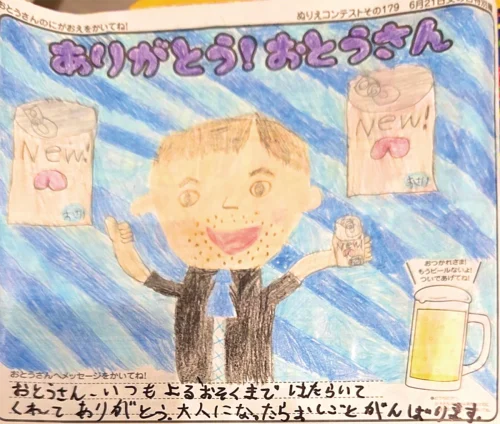 おとうさんのにがおえをかいてね!
ぬりえコンテストその179 6月21日
ありがとう!おとうさん
New!
おさけ
New!
おさけ
New!
おつかれさま!
もうビールないよ!
ついであげてね!
おとうさんへメッセージをかいてね!
おとうさん、いつもよるおそくまではたらいて
くれてありがとう。大人になったらおしごとがんばります。